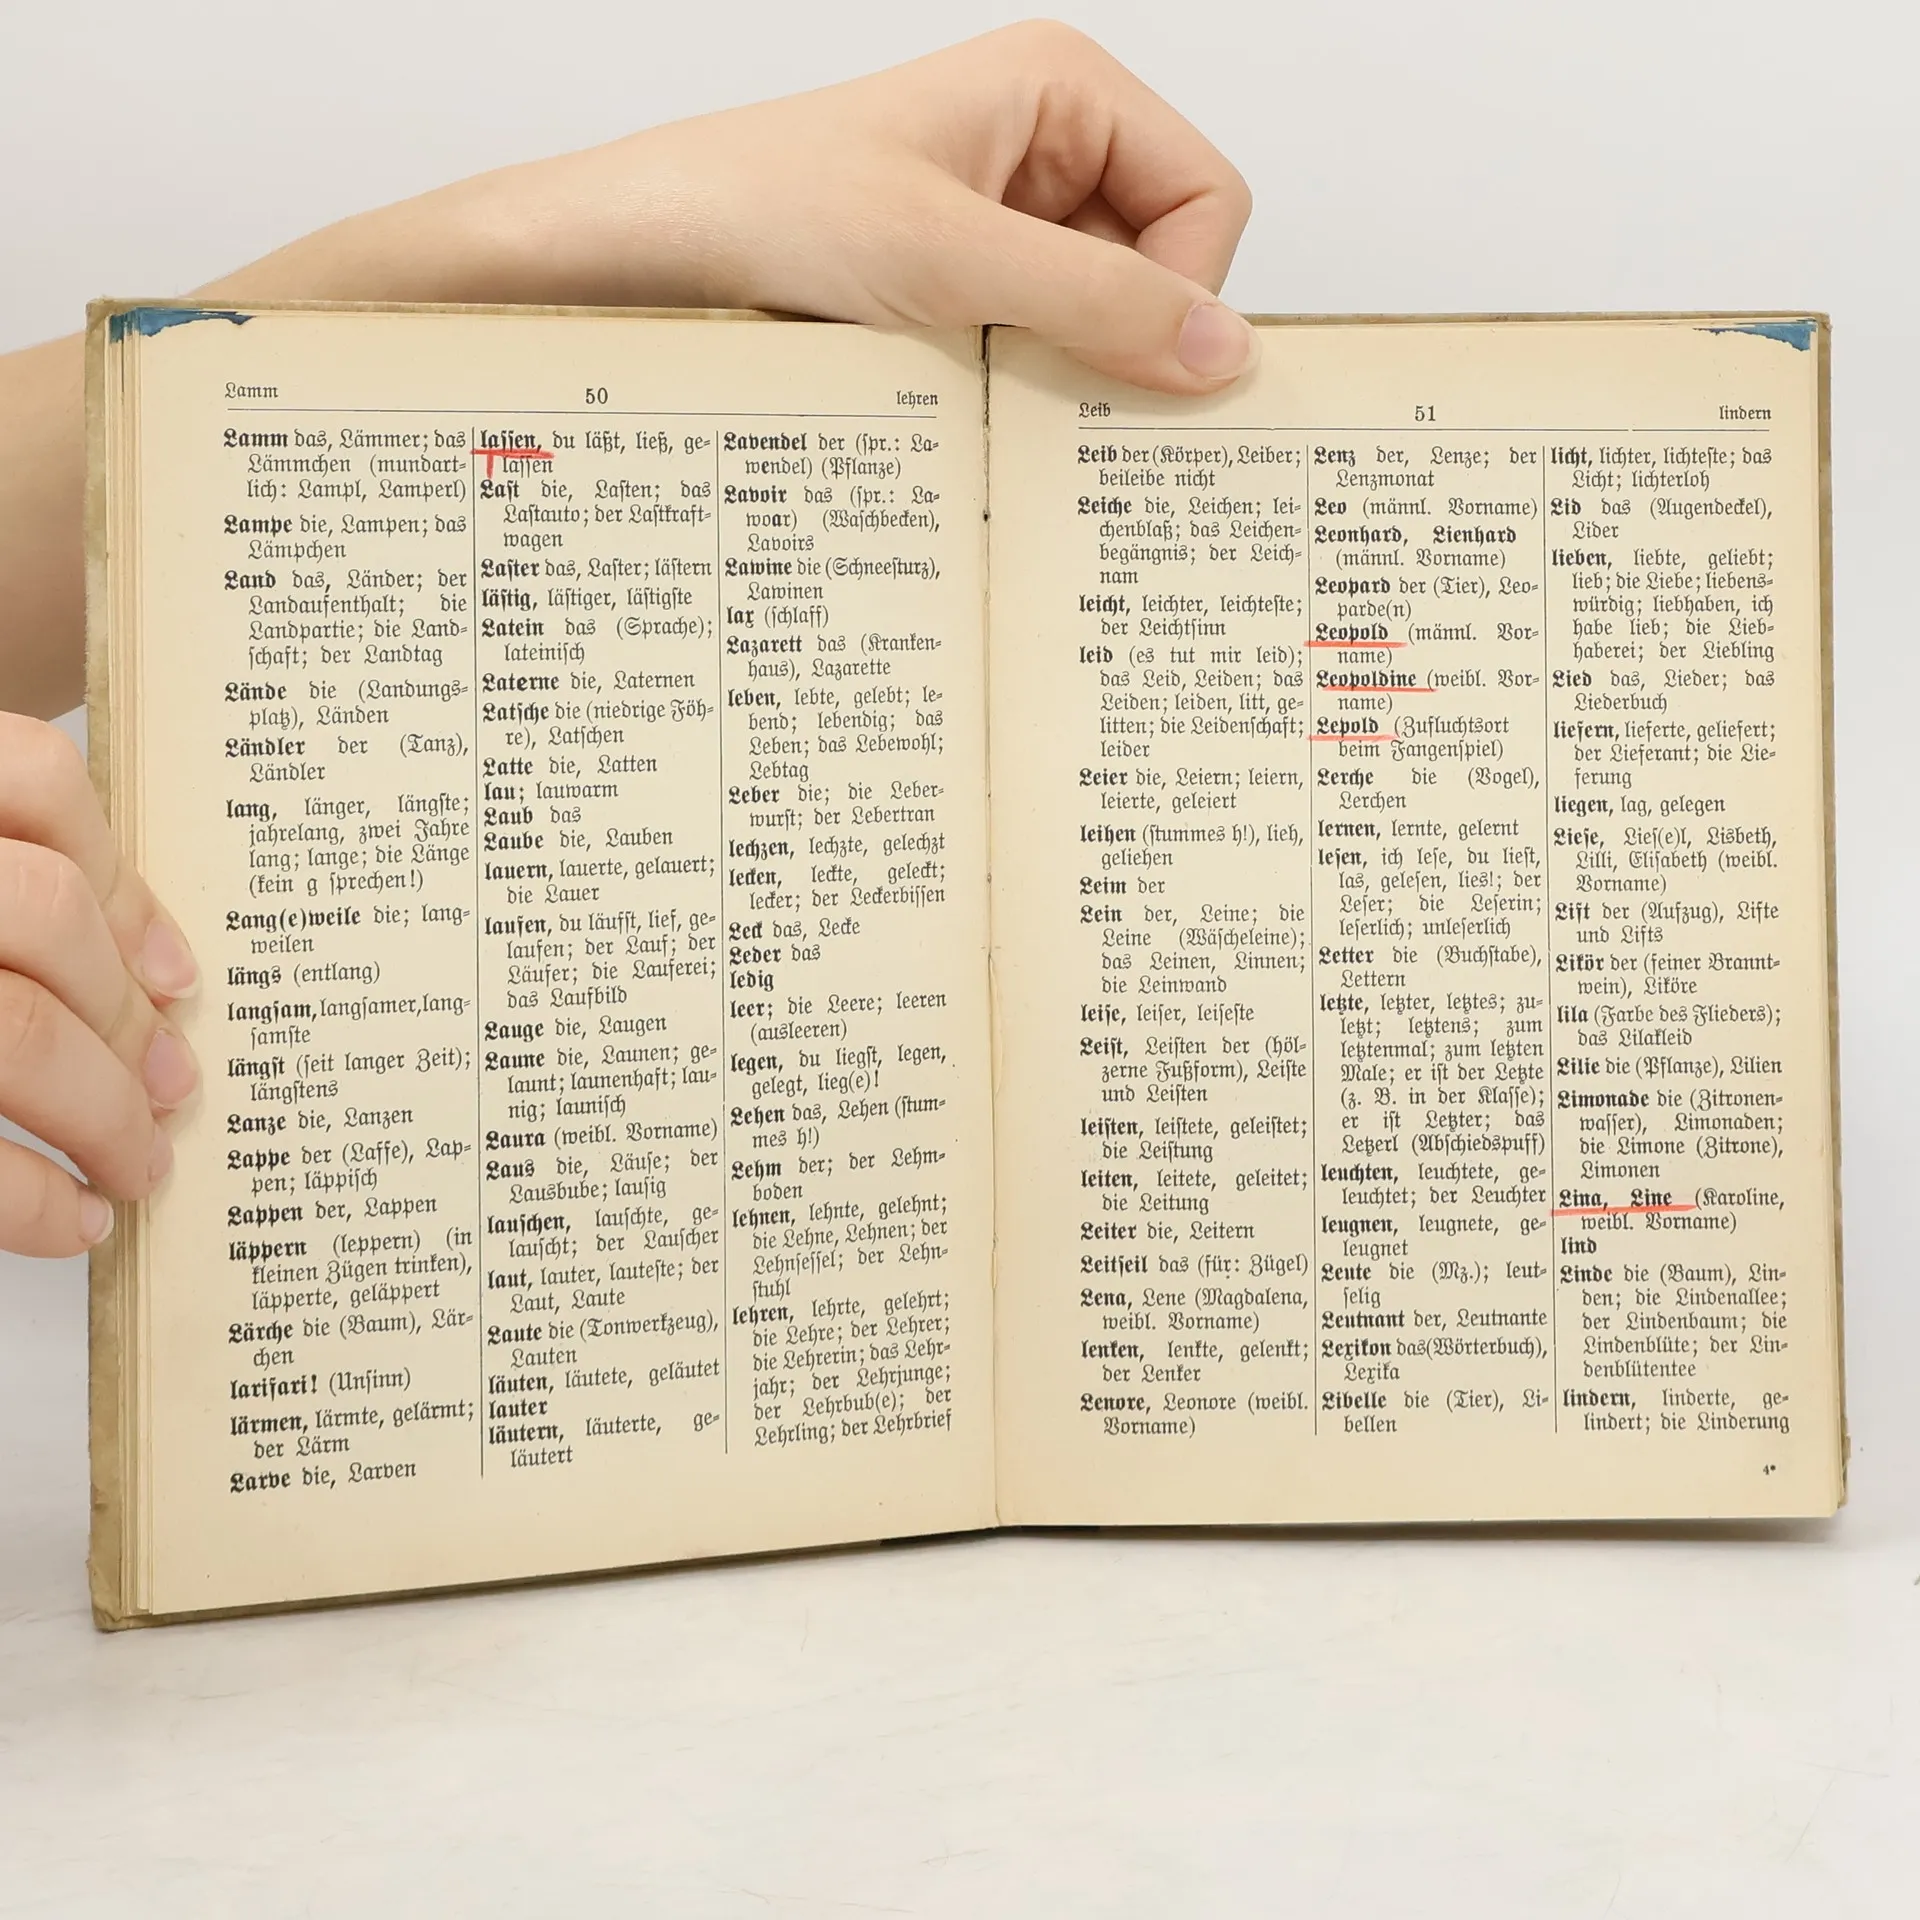 Lamm 50 lehren
Lamm das, Lämmer; das
Lämmchen (mundart-
lich: Lampl, Lamperl)
Lampe die, Lampen; das
Lämpchen
Land das, Länder; der
Landaufenthalt; die
Landpartie; die Land-
schaft; der Landtag
Lände die (Landungs-
platz), Länden
Ländler der (Tanz),
Ländler
lang, länger, längste;
jahrelang, zwei Jahre
lang; lange; die Länge
(kein g sprechen!)
Lang(e)weile die; lang-
weilen
längs (entlang)
langsam, langsamer, lang-
samste
längst (seit langer Zeit);
längstens
Lanze die, Lanzen
Lappe der (Laffe), Lap-
pen; läppisch
Lappen der, Lappen
läppern (leppern) (in
kleinen Zügen trinken),
läpperte, geläppert
Lärche die (Baum), Lär-
chen
larifari! (Unsinn)
lärmen, lärmte, gelärmt;
der Lärm
Larve die, Larven
lassen, du läßt, ließ, ge-
lassen
Last die, Lasten; das
Lastauto; der Lastkraft-
wagen
Laster das, Laster; lästern
lästig, lästiger, lästigste
Latein das (Sprache);
lateinisch
Laterne die, Laternen
Latsche die (niedrige Föh-
re), Latschen
Latte die, Latten
lau; lauwarm
Laub das
Laube die, Lauben
lauern, lauerte, gelauert;
die Lauer
laufen, du läufst, lief, ge-
laufen; der Lauf; der
Läufer; die Lauferei;
das Laufbild
Lauge die, Laugen
Laune die, Launen; ge-
launt; launenhaft; lau-
nig; launisch
Laura (weibl. Vorname)
Laus die, Läuse; der
Lausbube; lausig
lauschen, lauschte, ge-
lauscht; der Lauscher
laut, lauter, lauteste; der
Laut, Laute
Laute die (Tonwerkzeug),
Lauten
läuten, läutete, geläutet
lauter
läutern, läuterte, ge-
läutert
Lavendel der (spr.: La-
wendel) (Pflanze)
Lavoir das (spr.: La-
woar) (Waschbecken),
Lavoirs
Lawine die (Schneesturz),
Lawinen
lax (schlaff)
Lazarett das (Kranken-
haus), Lazarette
leben, lebte, gelebt; le-
bend; lebendig; das
Leben; das Lebewohl;
Lebtag
Leber die; die Leber-
wurst; der Lebertran
lechzen, lechzte, gelechzt
lecken, leckte, geleckt;
lecker; der Leckerbissen
Leck das, Lecke
Leder das
ledig
leer; die Leere; leeren
(ausleeren)
legen, du liegst, legen,
gelegt, lieg(e)!
Lehen das, Lehen (stum-
mes h!)
Lehm der; der Lehm-
boden
lehnen, lehnte, gelehnt;
die Lehne, Lehnen; der
Lehnsessel; der Lehn-
stuhl
lehren, lehrte, gelehrt;
die Lehre; der Lehrer;
die Lehrerin; das Lehr-
jahr; der Lehrjunge;
der Lehrbub(e); der
Lehrling; der Lehrbrief
Leib 51 lindern
Leib der (Körper), Leiber;
beileibe nicht
Leiche die, Leichen; lei-
chenblaß; das Leichen-
begängnis; der Leich-
nam
leicht, leichter, leichteste;
der Leichtsinn
leid (es tut mir leid);
das Leid, Leiden; das
Leiden; leiden, litt, ge-
litten; die Leidenschaft;
leider
Leier die, Leiern; leiern,
leierte, geleiert
leihen (stummes h!), lieh,
geliehen
Leim der
Lein der, Leine; die
Leine (Wäscheleine);
das Leinen, Linnen;
die Leinwand
leise, leiser, leiseste
Leist, Leisten der (höl-
zerne Fußform), Leiste
und Leisten
leisten, leistete, geleistet;
die Leistung
leiten, leitete, geleitet;
die Leitung
Leiter die, Leitern
Leitseil das (für: Zügel)
Lena, Lene (Magdalena,
weibl. Vorname)
lenken, lenkte, gelenkt;
der Lenker
Lenore, Leonore (weibl.
Vorname)
Lenz der, Lenze; der
Lenzmonat
Leo (männl. Vorname)
Leonhard, Lienhard
(männl. Vorname)
Leopard der (Tier), Leo-
parde(n)
Leopold (männl. Vor-
name)
Leopoldine (weibl. Vor-
name)
Lepold (Zufluchtsort
beim Fangenspiel)
Lerche die (Vogel),
Lerchen
lernen, lernte, gelernt
lesen, ich lese, du liest,
las, gelesen, lies!; der
Leser; die Leserin;
leserlich; unleserlich
Letter die (Buchstabe),
Lettern
letzte, letzter, letztes; zu-
letzt; letztens; zum
letztenmal; zum letzten
Male; er ist der Letzte
(z. B. in der Klasse);
er ist Letzter; das
Letzerl (Abschiedspuff)
leuchten, leuchtete, ge-
leuchtet; der Leuchter
leugnen, leugnete, ge-
leugnet
Leute die (Mz.); leut-
selig
Leutnant der, Leutnante
Lexikon das (Wörterbuch),
Lexika
Libelle die (Tier), Li-
bellen
licht, lichter, lichteste; das
Licht; lichterloh
Lid das (Augendeckel),
Lider
lieben, liebte, geliebt;
lieb; die Liebe; liebens-
würdig; liebhaben, ich
habe lieb; die Lieb-
haberei; der Liebling
Lied das, Lieder; das
Liederbuch
liefern, lieferte, geliefert;
der Lieferant; die Lie-
ferung
liegen, lag, gelegen
Liese, Lies(e)l, Lisbeth,
Lilli, Elisabeth (weibl.
Vorname)
Lift der (Aufzug), Lifte
und Lifts
Likör der (feiner Brannt-
wein), Liköre
lila (Farbe des Flieders);
das Lilakleid
Lilie die (Pflanze), Lilien
Limonade die (Zitronen-
wasser), Limonaden;
die Limone (Zitrone),
Limonen
Lina, Line (Karoline,
weibl. Vorname)
lind
Linde die (Baum), Lin-
den; die Lindenallee;
der Lindenbaum; die
Lindenblüte; der Lin-
denblütentee
lindern, linderte, ge-
lindert; die Linderung
4*